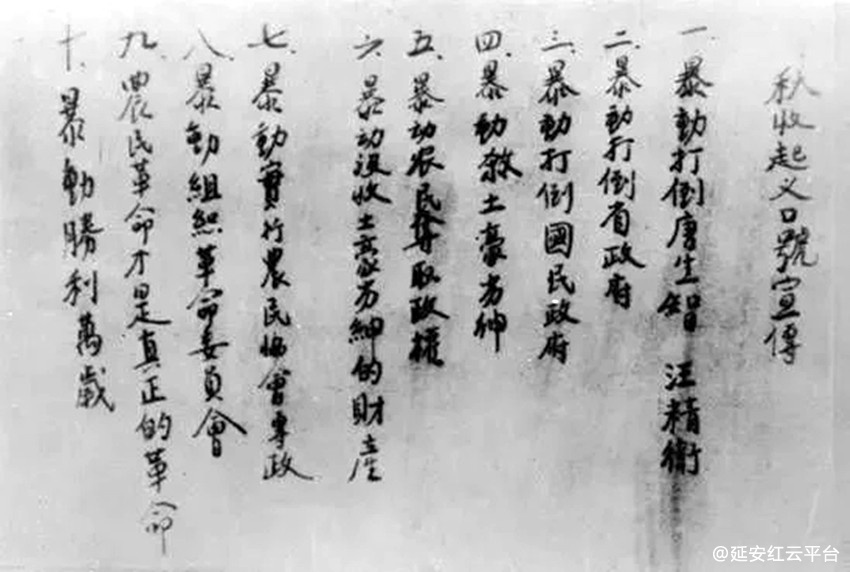 秋收起义口號宣傳
一、暴動打倒唐生智 汪精衛
二、暴動打倒省政府
三、暴動打倒國民政府
四、暴動殺土豪劣紳
五、暴动农民奪取政權
六、暴动没收土豪劣紳的財產
七、暴動實行農民協會專政
八、暴動組织革命委員會
九、農民革命才是真正的革命
十、暴動勝利萬歲
@延安红云平台